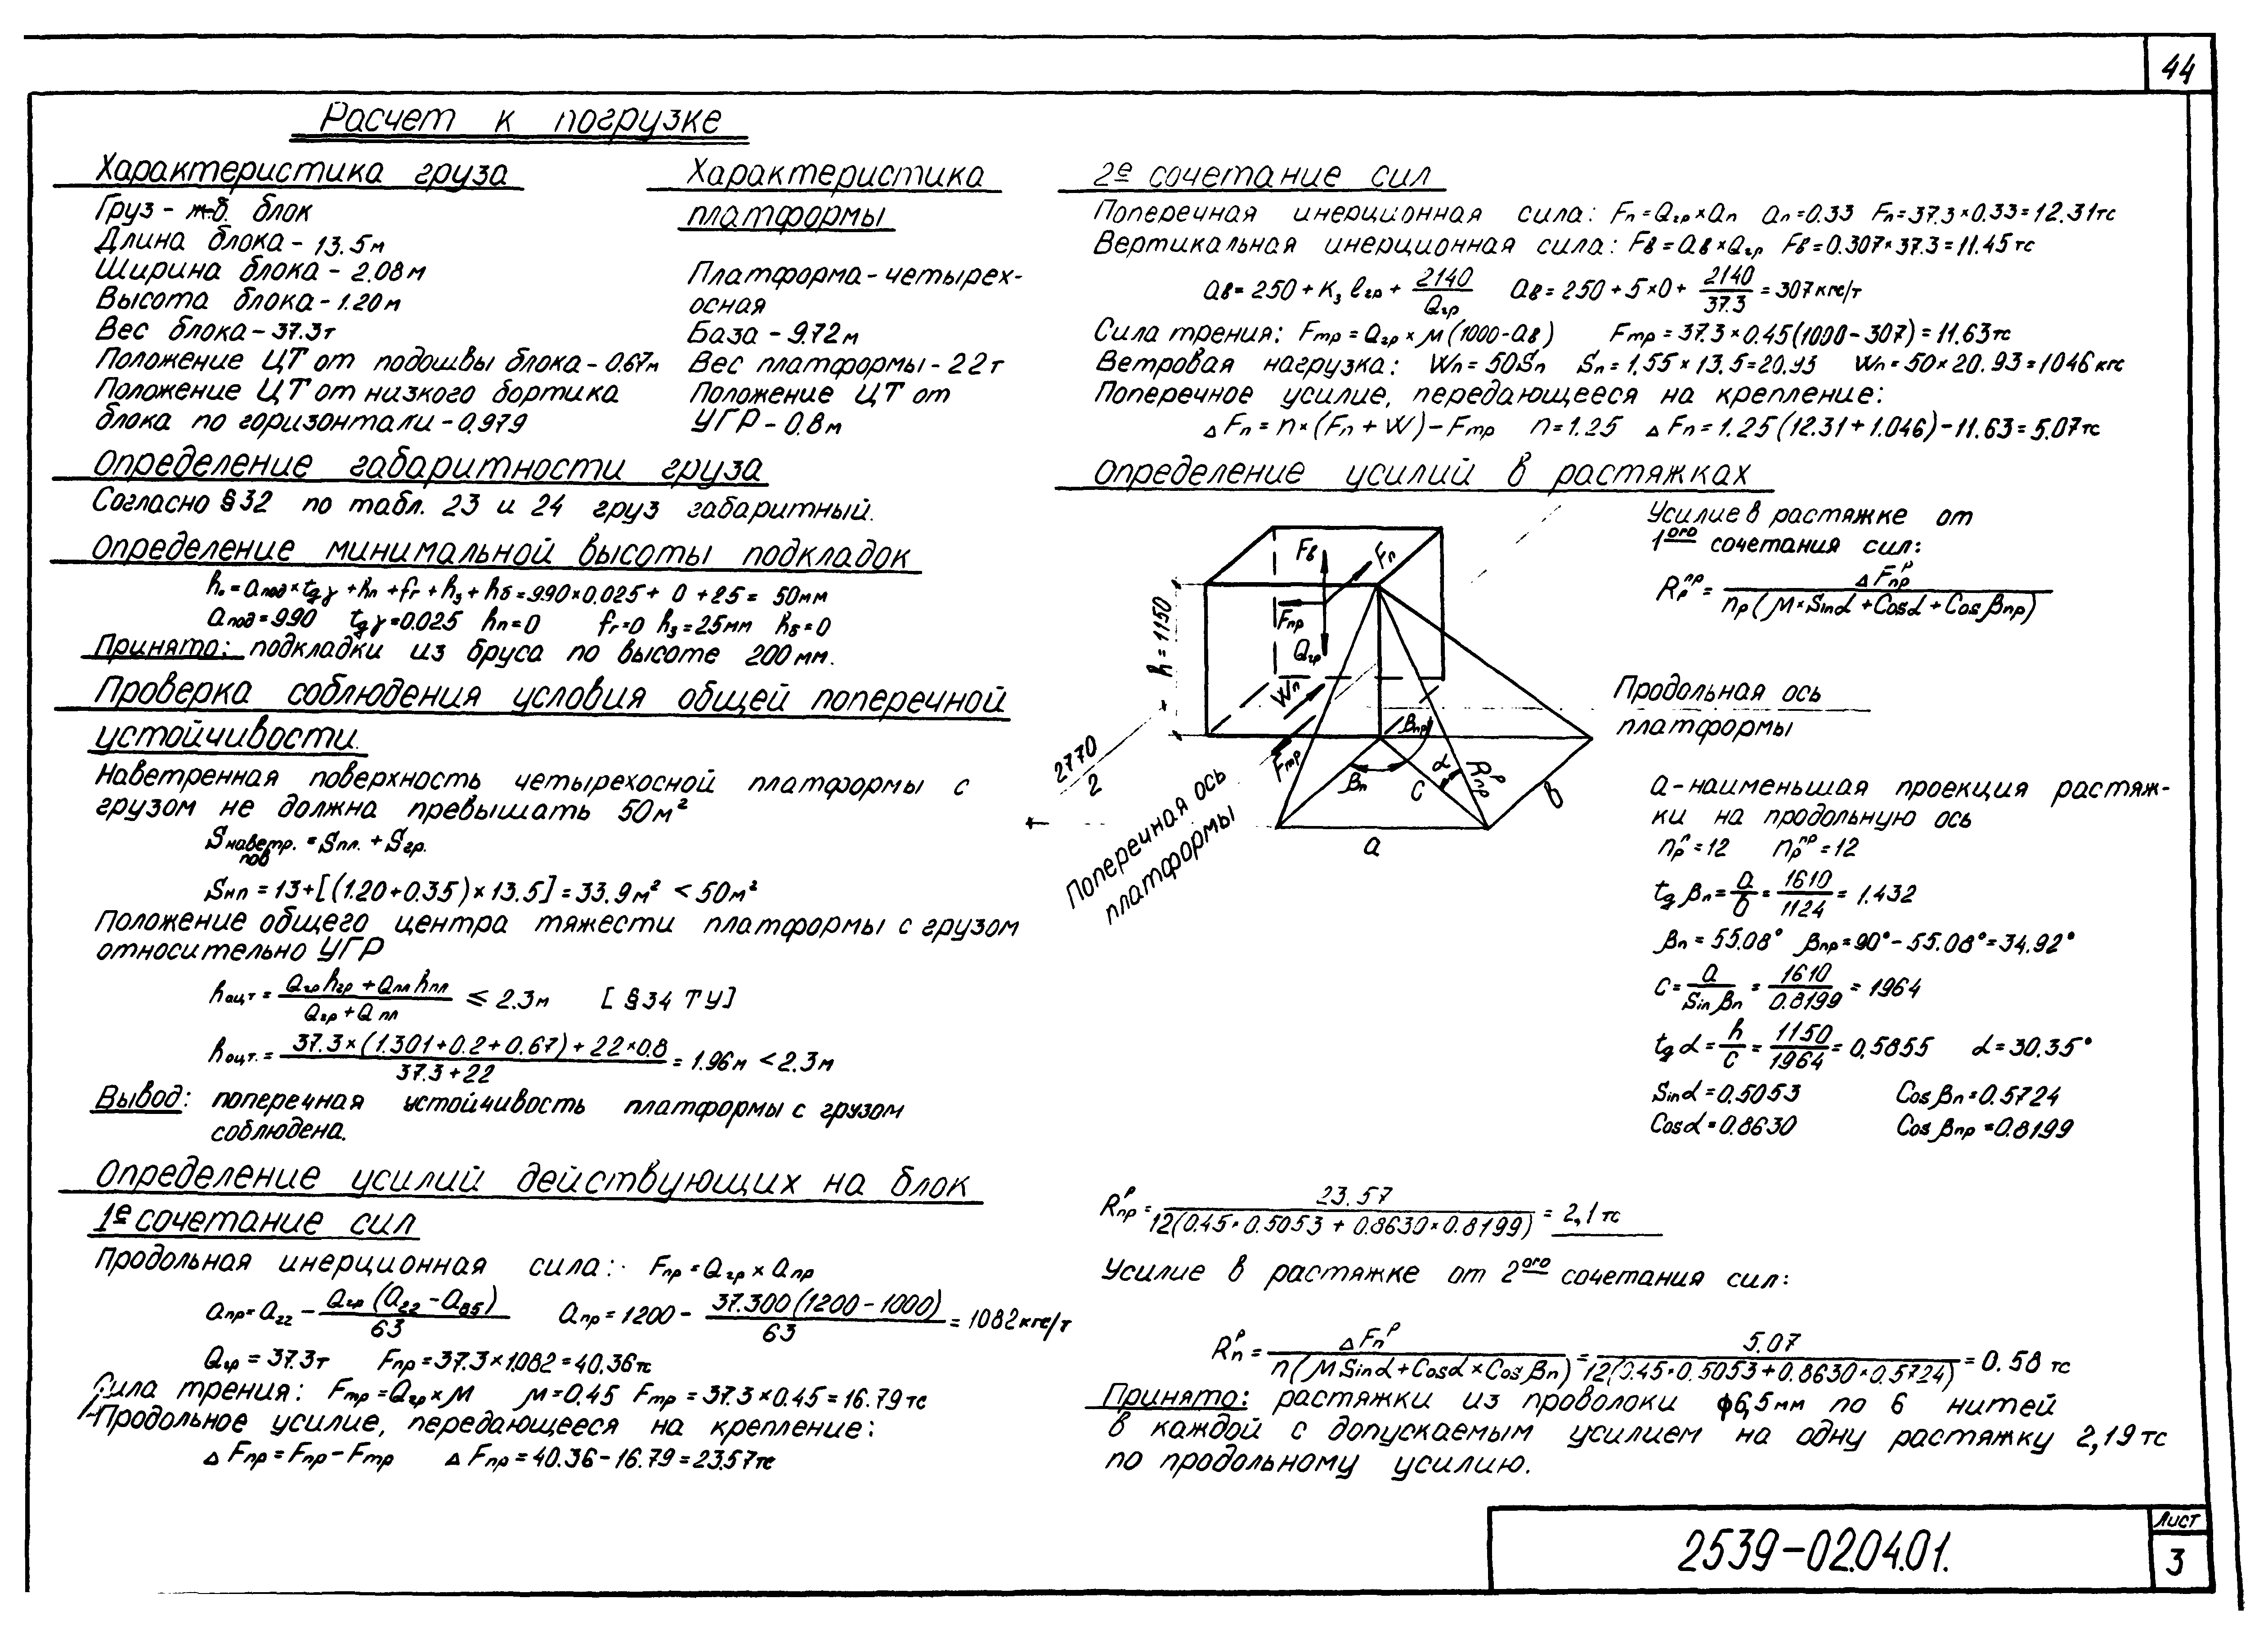 44
Расчет к погрузке
Характеристика груза
Груз - ж-б. блок
Длина блока - 13.5м
Ширина блока - 2.08м
Высота блока - 1.20м
Вес блока - 37.3т
Положение ЦТ от подошвы блока - 0.67м
Положение ЦТ от низкого бортика
блока по горизонтали - 0.979
Характеристика
платформы
Платформа - четырех-
осная
База - 9.72м
Вес платформы - 22т
Положение ЦТ от
УГР - 0.8м
Определение габаритности груза
Согласно §32 по табл. 23 и 24 груз габаритный.
Определение минимальной высоты подкладок
h₀ = aпод × tgγ + hп + fг + hз + hб = 990 × 0.025 + 0 + 25 = 50мм
aпод = 990 tgγ = 0.025 hп = 0 fг = 0 hз = 25мм hб = 0
Принято: подкладки из бруса по высоте 200мм.
Проверка соблюдения условия общей поперечной
устойчивости.
Наветренная поверхность четырехосной платформы с
грузом не должна превышать 50м²
Sнаветр. пов = Sпл. + Sгр.
Sнп = 13 + [(1.20 + 0.35) × 13.5] = 33.9м² < 50м²
Положение общего центра тяжести платформы с грузом
относительно УГР
hоцт = (Qгр hгр + Qпл hпл) / (Qгр + Qпл) ≤ 2.3м [§34 ТУ]
hоцт. = (37.3 × (1.301 + 0.2 + 0.67) + 22 × 0.8) / (37.3 + 22) = 1.96м < 2.3м
Вывод: поперечная устойчивость платформы с грузом
соблюдена.
Определение усилий действующих на блок
1е сочетание сил
Продольная инерционная сила: Fпр = Qгр × aпр
aпр = a22 - Qгр (a22 - a85) / 63 aпр = 1200 - 37.300 (1200 - 1000) / 63 = 1082кгс/т
Qгр = 37.3т Fпр = 37.3 × 1.082 = 40.36тс
Сила трения: Fтр = Qгр × М М = 0.45 Fтр = 37.3 × 0.45 = 16.79тс
Продольное усилие, передающееся на крепление:
ΔFпр = Fпр - Fтр ΔFпр = 40.36 - 16.79 = 23.57тс
2е сочетание сил
Поперечная инерционная сила: Fп = Qгр × aп aп = 0.33 Fп = 37.3 × 0.33 = 12.31тс
Вертикальная инерционная сила: Fв = aв × Qгр Fв = 0.307 × 37.3 = 11.45тс
aв = 250 + Kз lгр + 2140 / Qгр aв = 250 + 5 × 0 + 2140 / 37.3 = 307кгс/т
Сила трения: Fтр = Qгр × М (1000 - aв) Fтр = 37.3 × 0.45 (1000 - 307) = 11.63тс
Ветровая нагрузка: Wп = 50Sп Sп = 1.55 × 13.5 = 20.93 Wп = 50 × 20.93 = 1046кгс
Поперечное усилие, передающееся на крепление:
ΔFп = n × (Fп + W) - Fтр n = 1.25 ΔFп = 1.25 (12.31 + 1.046) - 11.63 = 5.07тс
Определение усилий в растяжках
Усилие в растяжке от
1ого сочетания сил:
Rрпр = ΔFпрр / nр (М × Sinα + Cosα + Cosβпр)
Fв
Fп
Fпр
Qгр
Wп
Fтр
h = 1150
2770 / 2
βпр
βп
α
Rпрр
c
в
a
Поперечная ось
платформы
Продольная ось
платформы
a - наименьшая проекция растяж-
ки на продольную ось
nрп = 12 nрпр = 12
tgβп = a / в = 1610 / 1124 = 1.432
βп = 55.08° βпр = 90° - 55.08° = 34.92°
c = a / Sinβп = 1610 / 0.8199 = 1964
tgα = h / c = 1150 / 1964 = 0.5855 α = 30.35°
Sinα = 0.5053 Cosβп = 0.5724
Cosα = 0.8630 Cosβпр = 0.8199
Rпрр = 23.57 / 12(0.45 · 0.5053 + 0.8630 × 0.8199) = 2,1тс
Усилие в растяжке от 2ого сочетания сил:
Rпр = ΔFпр / n(М Sinα + Cosα × Cosβп) = 5.07 / 12(0.45 · 0.5053 + 0.8630 × 0.5724) = 0.58 тс
Принято: растяжки из проволоки ф6,5мм по 6 нитей
в каждой с допускаемым усилием на одну растяжку 2,19тс
по продольному усилию.
2539-02.04.01.
Лист
3